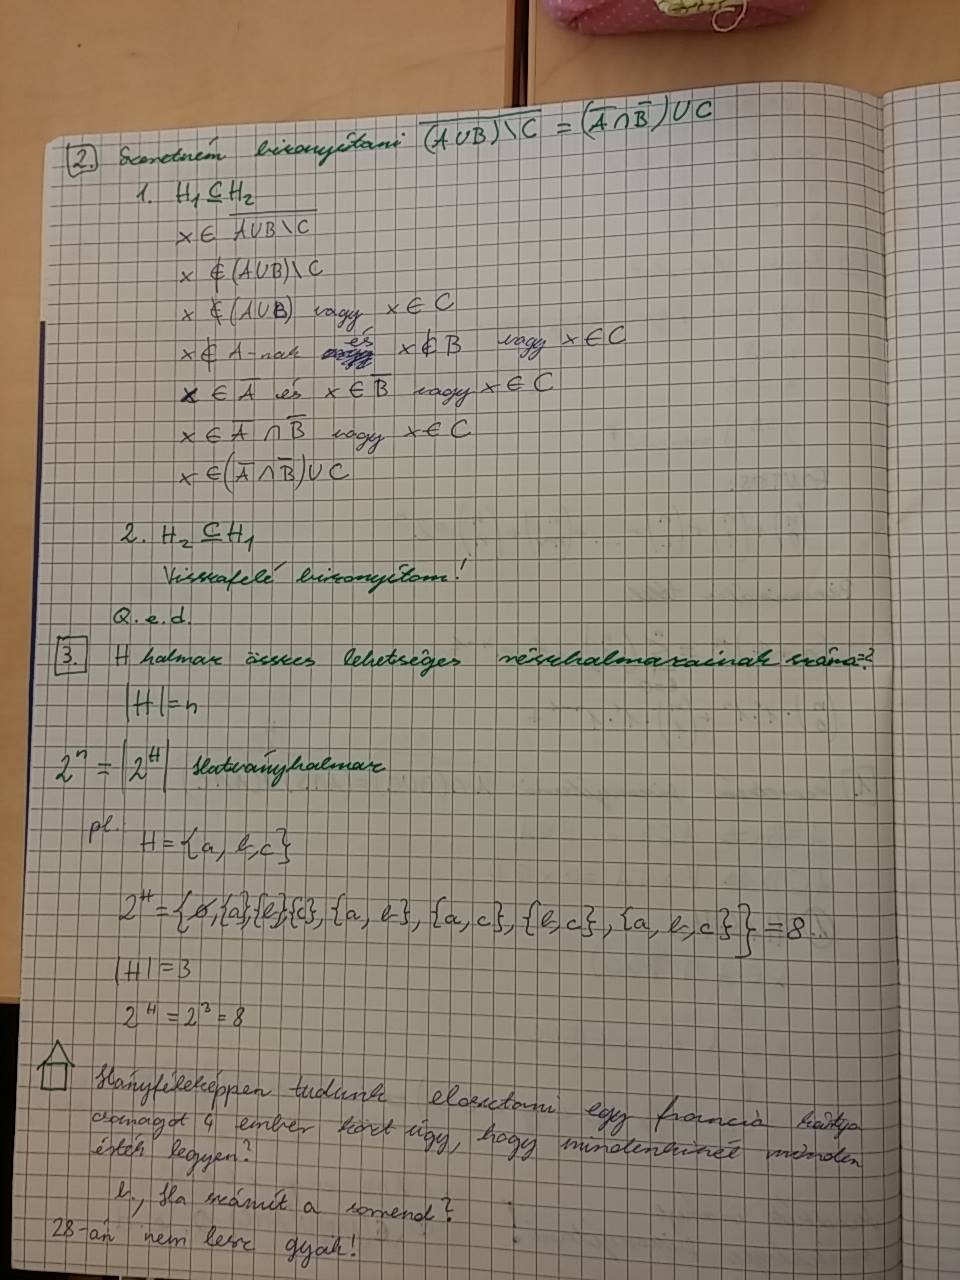 2. Szeretném bizonyítani \overline{(A∪B)\C} = (A̅∩B̅)∪C
1. H₁⊆H₂
x∈ \overline{A∪B\C}
x ∉ (A∪B)\C
x ∉ (A∪B) vagy x∈C
x∉ A-nak és x∉B vagy x∈C
x ∈ A̅ és x∈B̅ vagy x∈C
x∈A̅ ∩ B̅ vagy x∈C
x∈(A̅∩B̅)∪C
2. H₂⊆H₁
Visszafelé bizonyítom!
Q.e.d.
3. H halmaz összes lehetséges részhalmazainak száma=?
|H|=n
2ⁿ = |2ᴴ| Hatványhalmaz
pl. H = {a, b, c}
2ᴴ={∅,{a},{b},{c},{a, b},{a, c},{b, c},{a, b, c}}=8
|H|=3
2ᴴ=2³=8
Hányféleképpen tudunk elosztani egy francia kártya
csomagot 4 ember közt úgy, hogy mindenkinél minden
érték legyen?
b., Ha számít a sorrend?
28-án nem lesz gyak!